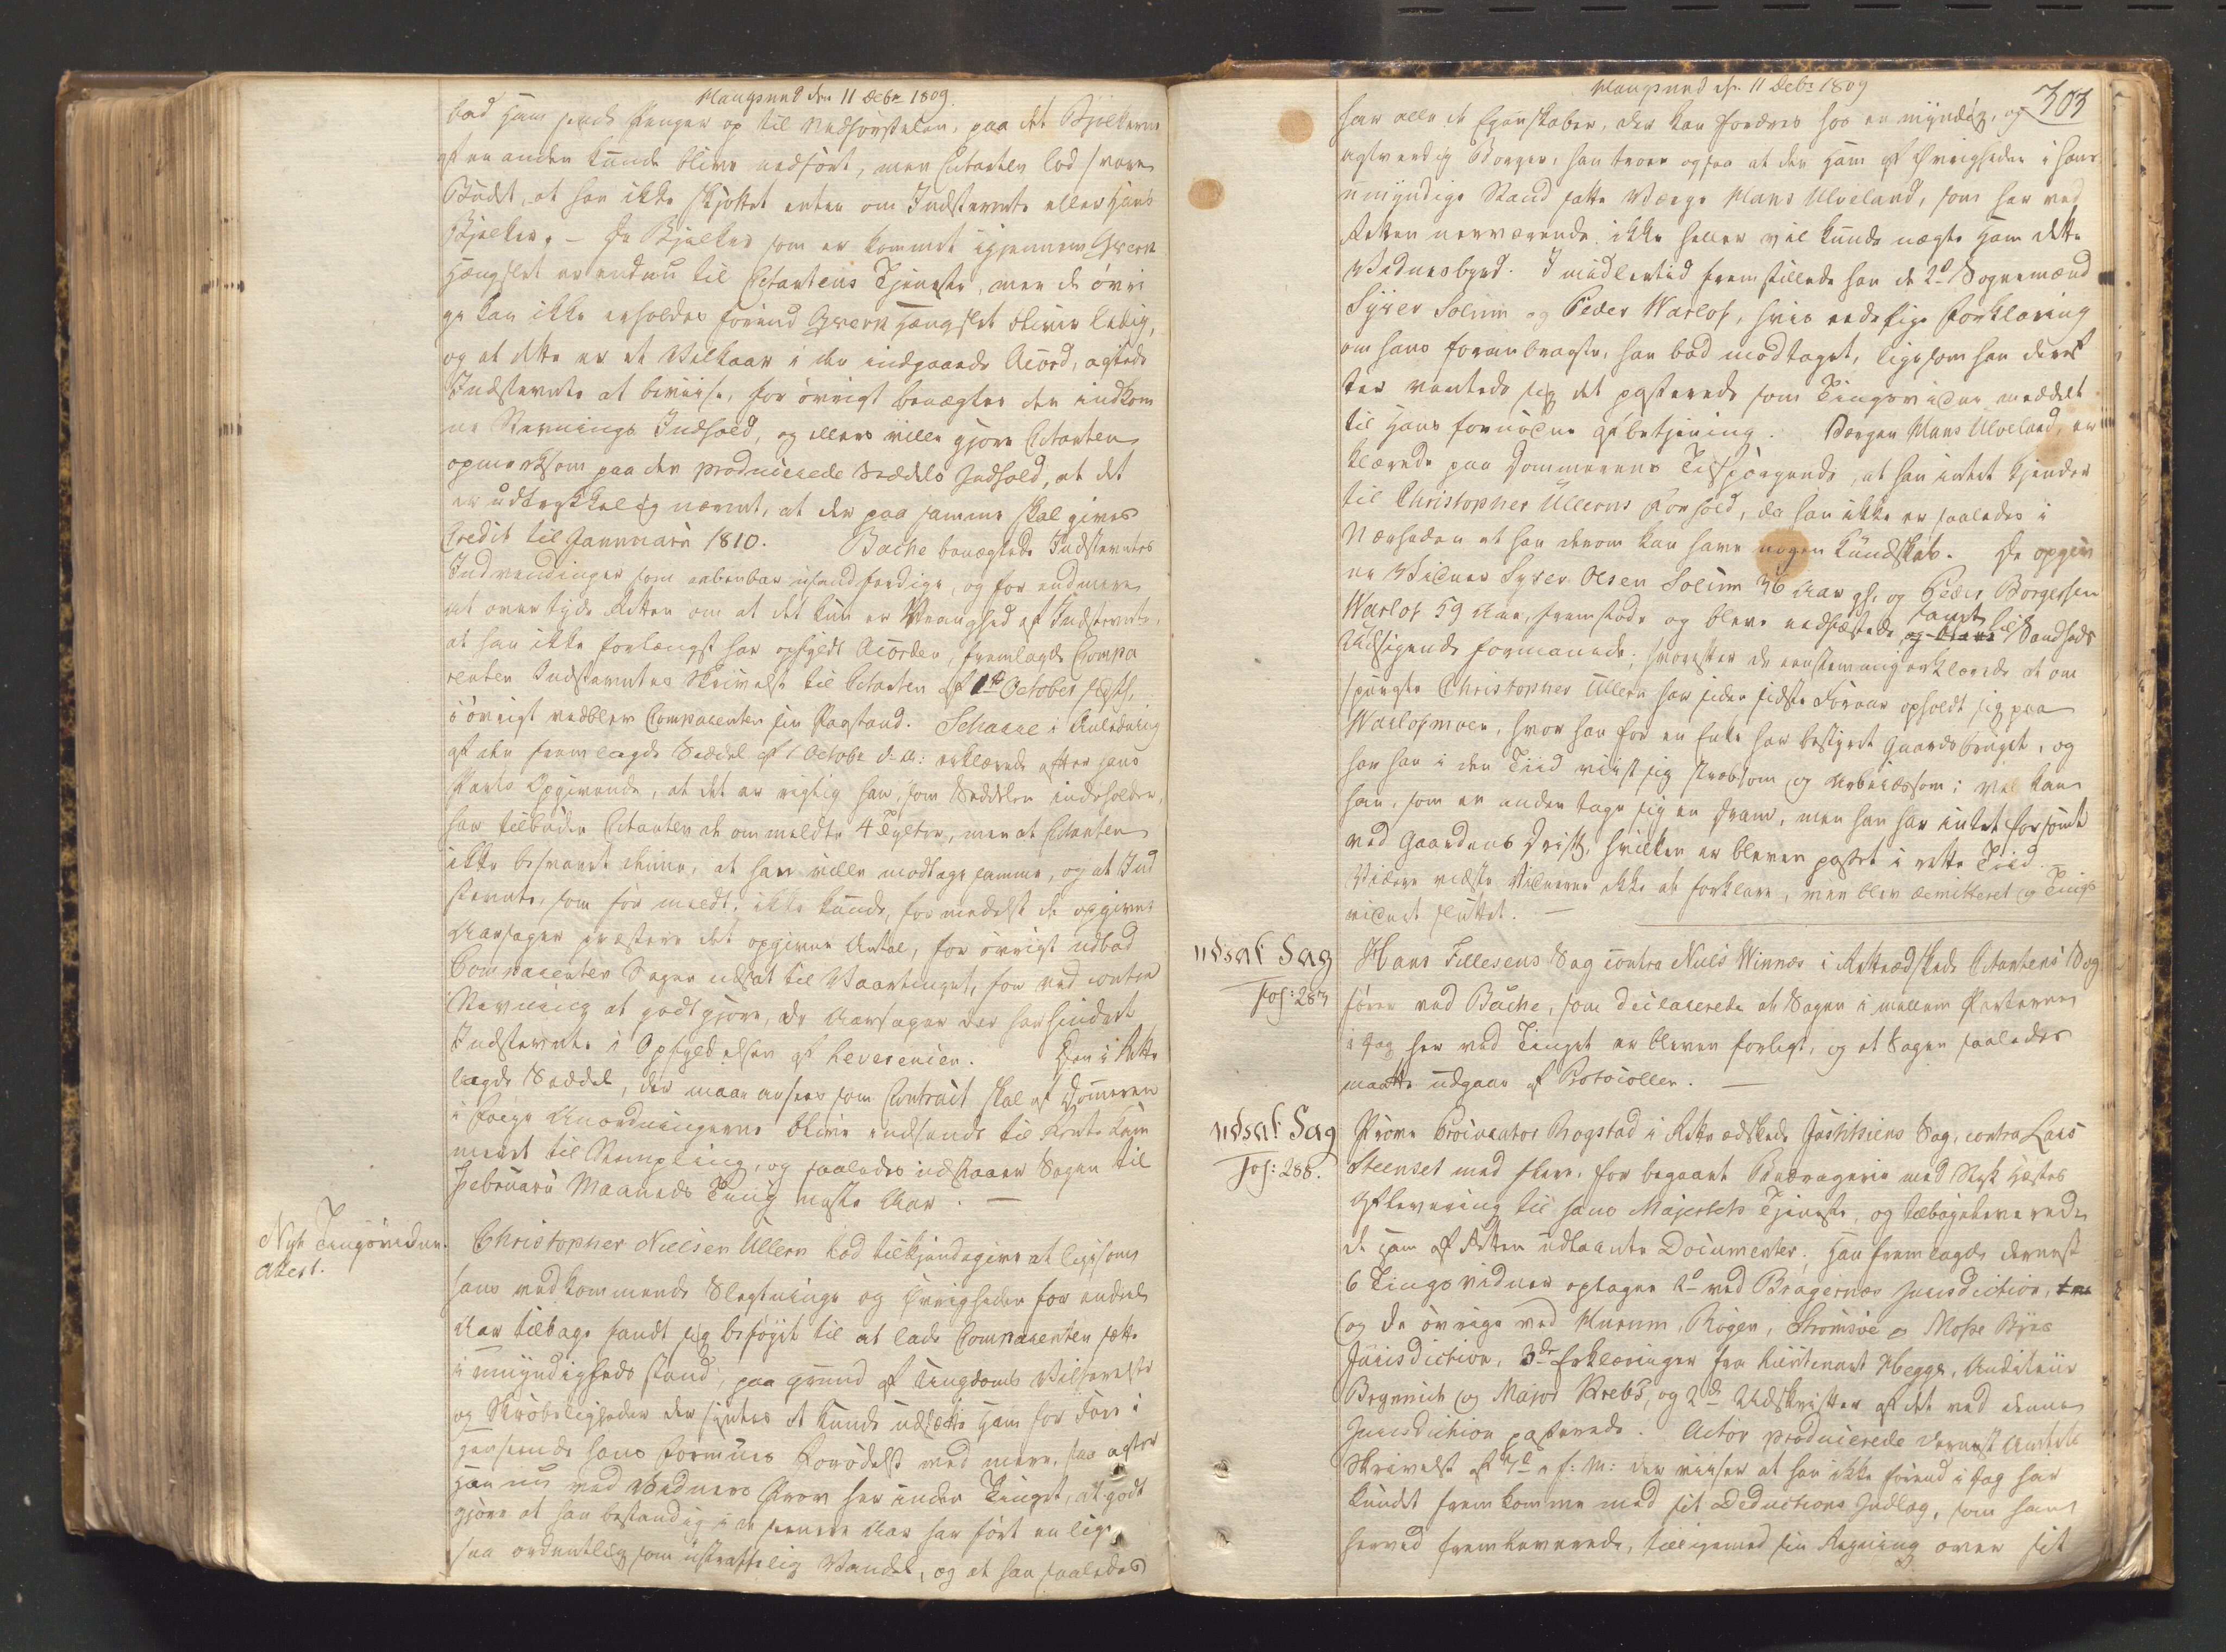 Haugsund den 11 Debr 1809.
bad ham sende Penger op til Nedførselen, paa det Bjelkerne
af en anden kunde blive nedført, men Citanten lod svare
Budet, at han ikke skjøttet enten om Indstevnte eller hans
Bjelker. – De Bjelker som er kommet igjennem Hværk
Hængslet er endnu til Citantens Tjeneste, men de øvri
ge kan ikke erholdes førend Hværk Hængslet bliver ledig,
og at dette er et Vilkaar i den indgaaede Acord, agtede
Indstevnte at beviise, for øvrigt benægtes den indkom
ne Stevnings Indhold, og ellers ville gjøre Citanten
opmerksom paa den producerede Seddels Indhold, at det
er udtrykkelig nævnt, at der paa samme skal gives
Credit til Januarii 1810. Bache benægtede Indstevntes
Indvendinger som aabenbar usandferdige, og for end mere
at overtyde Retten om at det kun er Vranghed af Indstevnte,
at han ikke forlængst har opfyldt Acorden, fremlagde Compa
renten Indstevntes Skrivelse til Citanten af 1te October sidstl,
i øvrigt vedblev Comparenten sin Paastand. Schaare i Anledning
af den fremlagde Seddel af 1 Octobr d. A: erklærede efter hans
Parts Opgivende, at det er rigtig han, som Seddelen indeholder,
har tilbuden Citanten de ommeldte 4 Tylter, men at Citanten
ikke besvaret denne, at han ville modtage samme, og at Ind
stevnte, som før meldt, ikke kunde, formedelst de opgivne
Aarsager præstere det opgivne Antal, for øvrigt udbad
Comparenten Sagen udsat til Vaartinget, for ved contra
Stevning at godtgjøre, de Aarsager der har hindret
Indstevnte i Opfyldelsen af Leverencen. Den i Rette
lagde Seddel, der maae ansees som Contract skal af Domeren
i følge Anordningerne blive indsendt til Rente Kam
meret til Stempling, og saaledes udstaaer Sagen til
Februarii Maaneds Ting næste Aar. –
Nyt Tingsvidne
Attest.
Christopher Nielsen Ullern lod tilkjendegive at ligesom
hans vedkommende Slegtninge og Øvrigheden for endeel
Aar tilbage fandt sig beføyet til at lade Comparenten sætte
i umyndigheds stand, paa grund af Ungdoms Vilfarelse
og Skrøbeligheder der syntes at kunde udsætte ham for Fare i
Henseende hans Formues Forødelse med mere, saa agter
han nu ved Vidners Prov her inden Tinget, at godt
gjøre at han bestandig i de seenere Aar har ført en lige
saa ordentlig som ustraffelig Vandel, og at han saaledes
Haugsund d. 11 Debr 1809
303
har alle de Egenskaber, der kan fordres hos en myndig, og
agtverdig Borger, han troer ogsaa at den ham af Øvrigheden i hans
umyndige Stand satte Værge Hans Ulveland, som har ved
Retten nerværende ikke heller vil kunde nægte ham dette
Vidnesbyrd. Imidlertid fremstillede han de 2de Sognemænd
Syver Solum og Peder Warlof, hvis eedelige Forklaring
om hans foranbragte, han bad modtaget, ligesom han deref
ter ventede sig det passerede som Tingsvidne meddelt
til Hans fornødne afbetjening. Værgen Hans Ulveland, er
klærede paa Dommerens Tilspørgende, at han intet kjender
til Christopher Ullerns Forhold, da han ikke er saaledes i
Nærheden at han derom kan have nogen Kundskab. De opgiv
ne Vidner Syver Olsen Solum 36 Aar gl. og Peder Borgersen
Warlof 59 Aar, fremstode og bleve eedfæstede samt til Sandheds
Udsigende formanede, hvorefter de eenstemmig erklærede at om
spurgte Christopher Ullern har siden sidste Foraar opholdt sig paa
Warlofmoen, hvor han for en Enke har bestyret Gaardsbruget, og
har han i den Tiid viist sig stræbsom og Arbeidsom; vel kan
han, som en anden tage sig en Dram, men han har intet forsømt
ved Gaardens Drift, hvilken er bleven passet i rette Tiid.
Videre vidste Vidnerne ikke at forklare, men blev demitteret og Tings
vidnet sluttet. –
udsat Sag
Fol: 287
Hans Tillesens Sag contra Niels Winnæs i Rette ædskede Citantens Sag
fører ved Bache, som declarerede at Sagen imellem Parterne
i Dag her ved Tinget er bleven forligt, og at Sagen saaledes
maatte udgaae af Protocollen. –
udsat Sag
Fol: 288.
Prove Procurator Rogstad i Rette ædskede Justitiens Sag, contra Lars
Steenset med flere, for begaaet Bedragerie med Hæstes
Aflevering til hans Majestets Tjeneste, og tilbageleverede
de ham af Retten udlaante Documenter; Han fremlagde dernest
6 Tingsvidner optagne 2de ved Bragernæs Jurisdiction,
og de øvrige ved Hurum, Røgen, Strømsøe og Mosse Byes
Jurisdiction, 3de Erklæringer fra Lieutenant Hegge, Auditeur
Bryenich og Major Krebs, og 2de Udskrifter af det ved denne
Jurisdiction passerede. Actor producerede dernest Amtets
Skrivelse af 7de s. f: M: der viiser at han ikke førend i Dag har
kundet fremkomme med sit Deductions Indlæg, som han
herved fremleverede, tilligemed sin Regning over sit